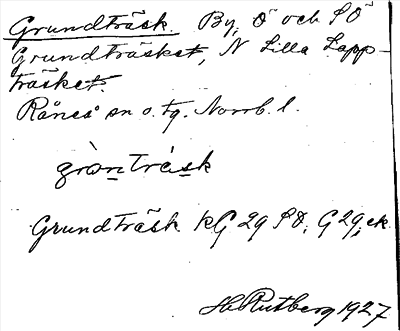 Grundträsk. By, Ö och SÖ
Grundträsket, N Lilla Lapp-
träsket.
Råneå sn o. tg. Norrb. l.
gròn träsk
Grundträsk kG 29 SÖ, G 29, ek.
H Rutberg 1927